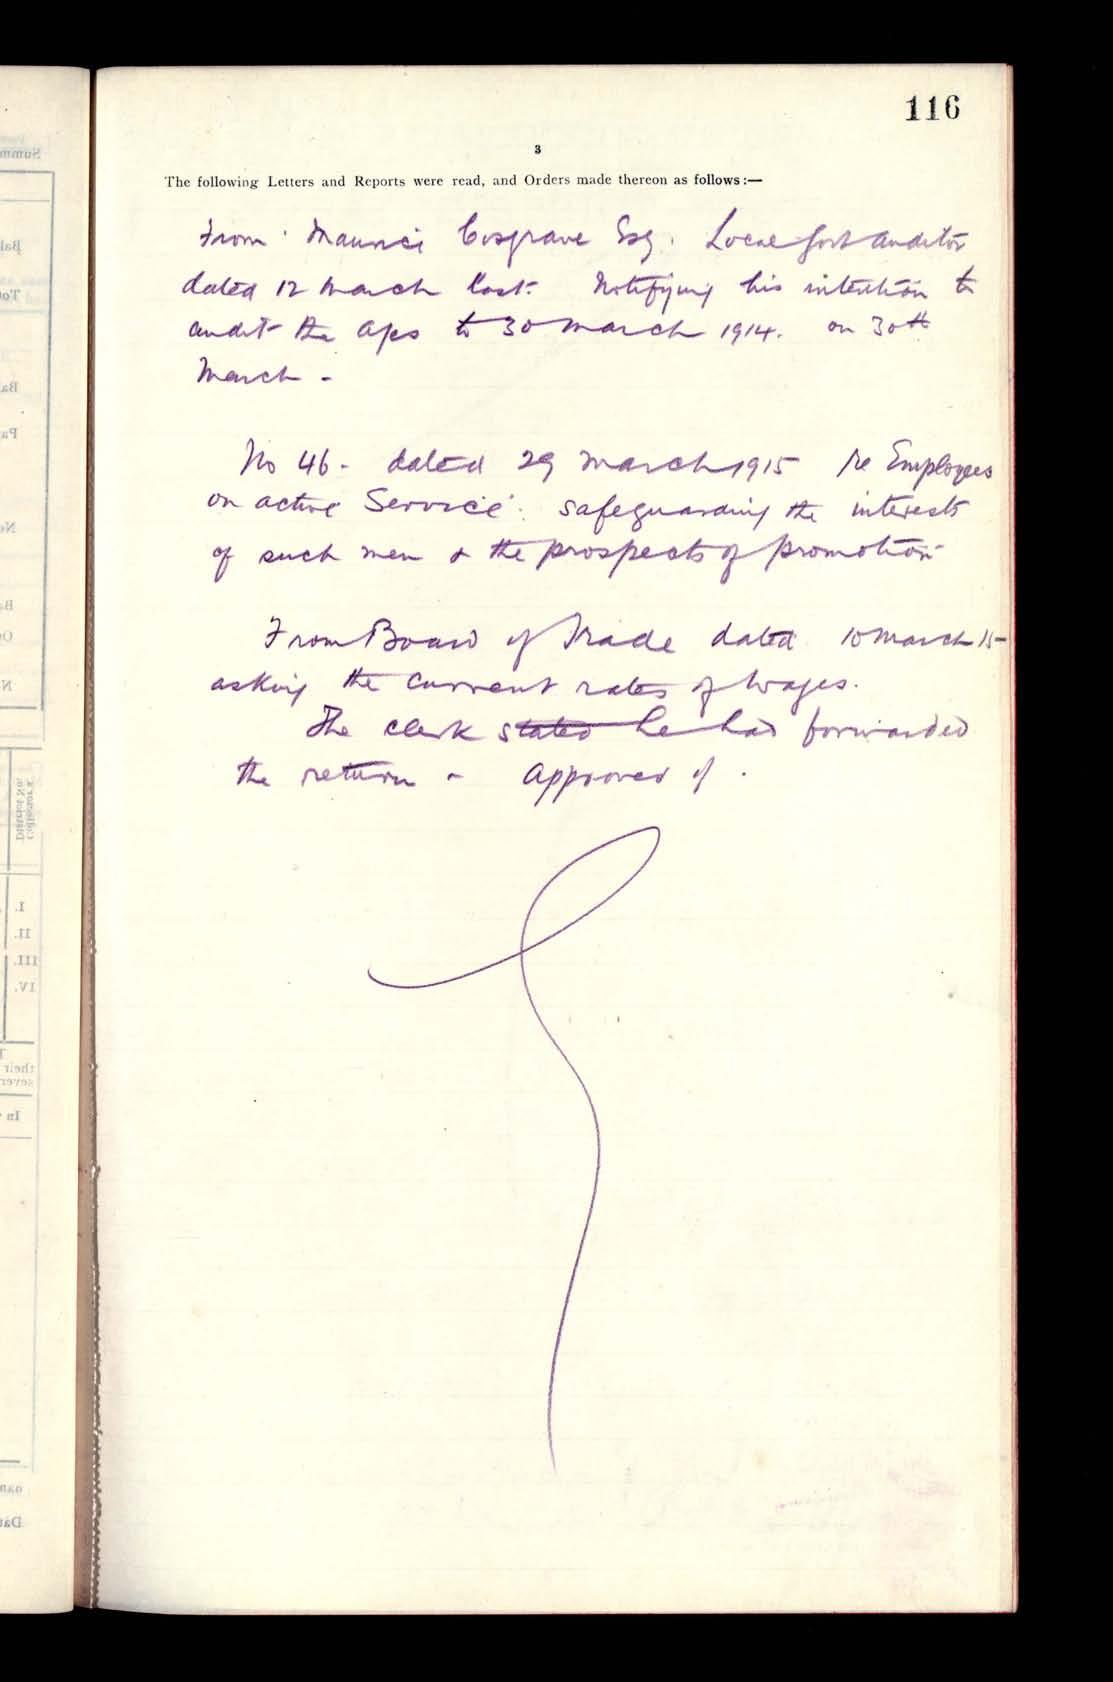 116
3
The following Letters and Reports were read, and Orders made thereon as follows:—
From Maurice Cosgrave Esq. Local Govt Auditor
dated 12 March last. Notifying his intention to
audit the a/cs to 30 March 1914. on 30th
March -
No 46 - dated 29 March 1915 re Employees
on active Service. safeguarding the interests
of such men & the prospects of promotion
From Board of Trade dated 10 March 15
asking the current rates of wages.
The clerk stated he had forwarded
the return - approved of.